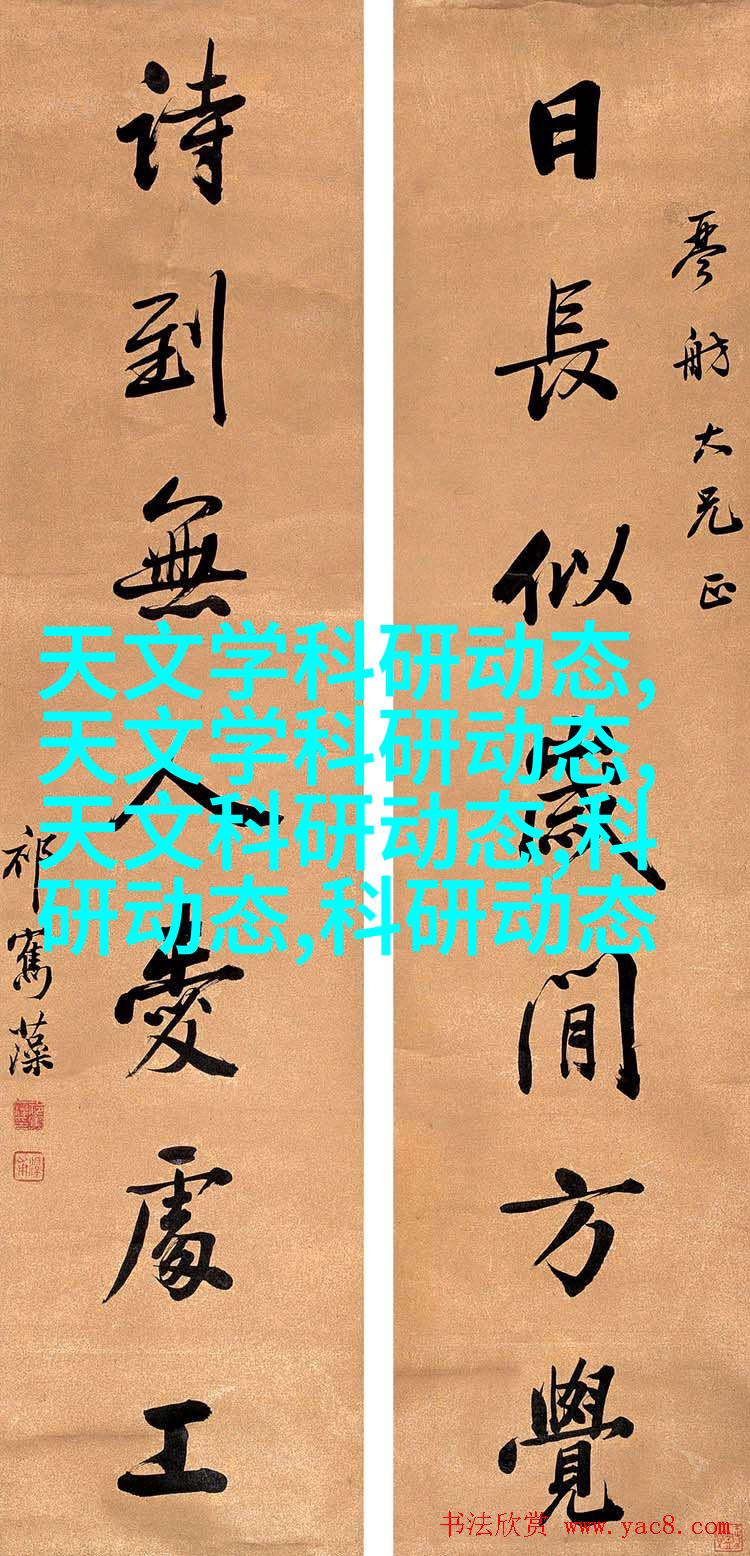 日長似歲閒方覺
琴舫大兄正
詩到無人愛處工
祁寯藻
天文学科研动态,
天文学科研动态,
天文科研动态,科
研动态,科研动态
书法欣赏 www.yac8.com